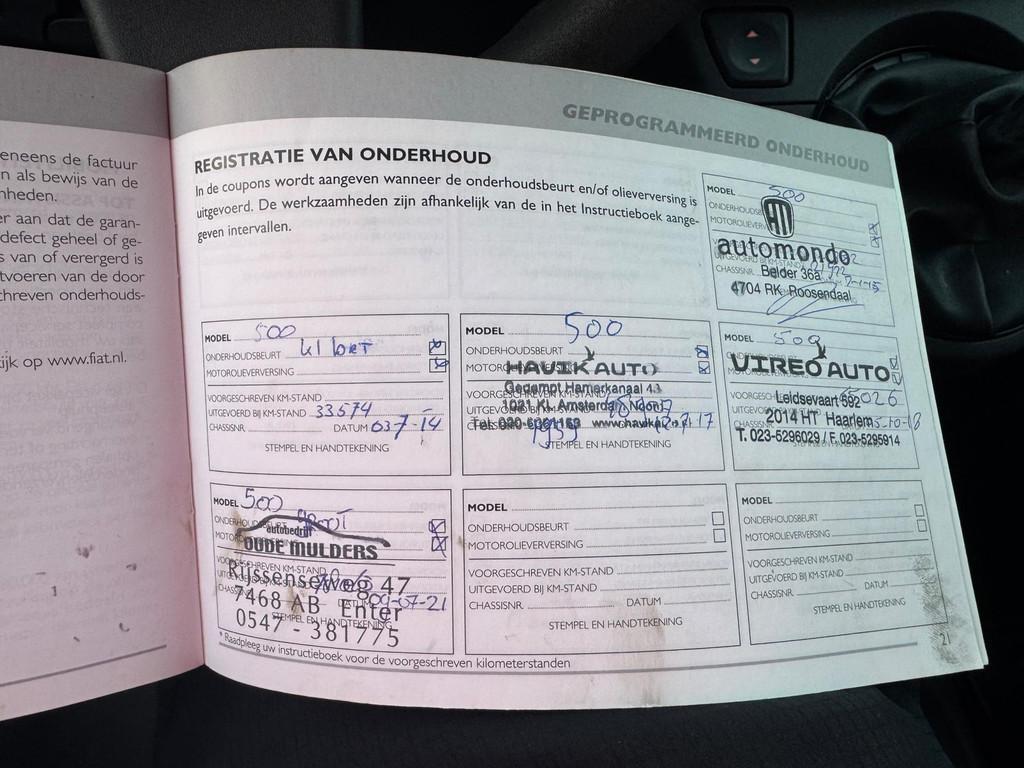 eneens de factuur
n als bewijs van de
nheden.
er aan dat de garan-
defect geheel of ge-
s van of verergerd is
tvoeren van de door
chreven onderhouds-
ijk op www.fiat.nl.
GEPROGRAMMEERD ONDERHOUD
REGISTRATIE VAN ONDERHOUD
In de coupons wordt aangeven wanneer de onderhoudsbeurt en/of olieverversing is
uitgevoerd. De werkzaamheden zijn afhankelijk van de in het Instructieboek aange-
geven intervallen.
MODEL 500
automondo
Belder 36a
4704 RK Roosendaal
MODEL 500
ONDERHOUDSBEURT
MOTOROLIEVERVERSING
VOORGESCHREVEN KM-STAND
UITGEVOERD BIJ KM-STAND 33574
CHASSISNR. DATUM 03-7-14
STEMPEL EN HANDTEKENING
MODEL 500
ONDERHOUDSBEURT
HAVIK AUTO
Gedempt Hamerkanaal
1021 KL Amsterdam Noord
STEMPEL EN HANDTEKENING
MODEL 500
VIREO AUTO
Leidsevaart 592
2014 HT Haarlem
T. 023-5296029 / F. 023-5295914
MODEL 500
autobedrijf
OUDE MULDERS
Rijssenseweg 47
7468 AB Enter
09-07-21
0547 - 381775
STEMPEL EN HANDTEKENING
MODEL
ONDERHOUDSBEURT
MOTOROLIEVERVERSING
VOORGESCHREVEN KM-STAND
UITGEVOERD BIJ KM-STAND
CHASSISNR. DATUM
STEMPEL EN HANDTEKENING
MODEL
ONDERHOUDSBEURT
MOTOROLIEVERVERSING
VOORGESCHREVEN KM-STAND
UITGEVOERD BIJ KM-STAND
CHASSISNR. DATUM
STEMPEL EN HANDTEKENING
* Raadpleeg uw instructieboek voor de voorgeschreven kilometerstanden
21